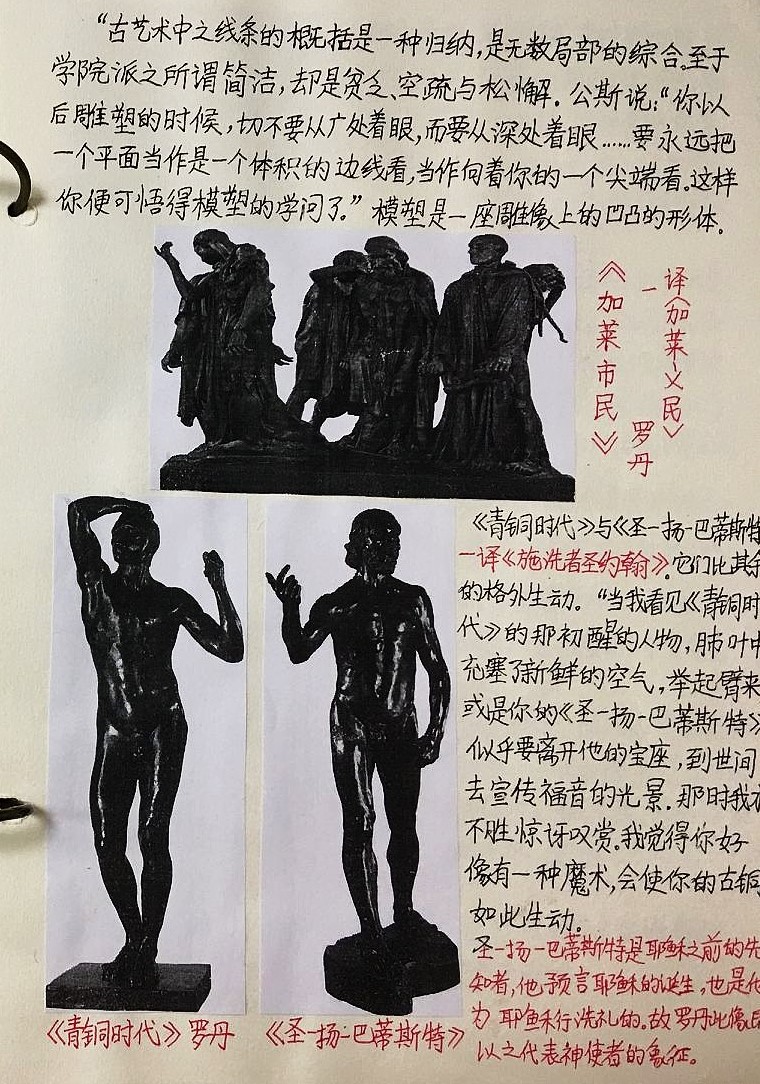 “古艺术中之线条的概括是一种归纳，是无数局部的综合。至于
学院派之所谓简洁，却是贫乏、空疏与松懈。公斯说：“你以
后雕塑的时候，切不要从广处着眼，而要从深处着眼……要永远把
一个平面当作是一个体积的边线看，当作向着你的一个尖端看。这样
你便可悟得模塑的学问了。”模塑是一座雕像上的凹凸的形体。
《加莱市民》
一译《加莱义民》
罗丹
《青铜时代》与《圣-扬-巴蒂斯特
一译《施洗者圣约翰》。它们比其余
的格外生动。“当我看见《青铜时
代》的那初醒的人物，肺叶中
充塞了新鲜的空气，举起臂来
或是你的《圣-扬-巴蒂斯特》
似乎要离开他的宝座，到世间
去宣传福音的光景。那时我
不胜惊讶叹赏。我觉得你好
像有一种魔术，会使你的古铜
如此生动。
圣-扬-巴蒂斯特是耶稣之前的先
知者，他预言耶稣的诞生，也是他
为耶稣行洗礼的。故罗丹此像
以之代表神使者的象征。
《青铜时代》罗丹
《圣-扬-巴蒂斯特》